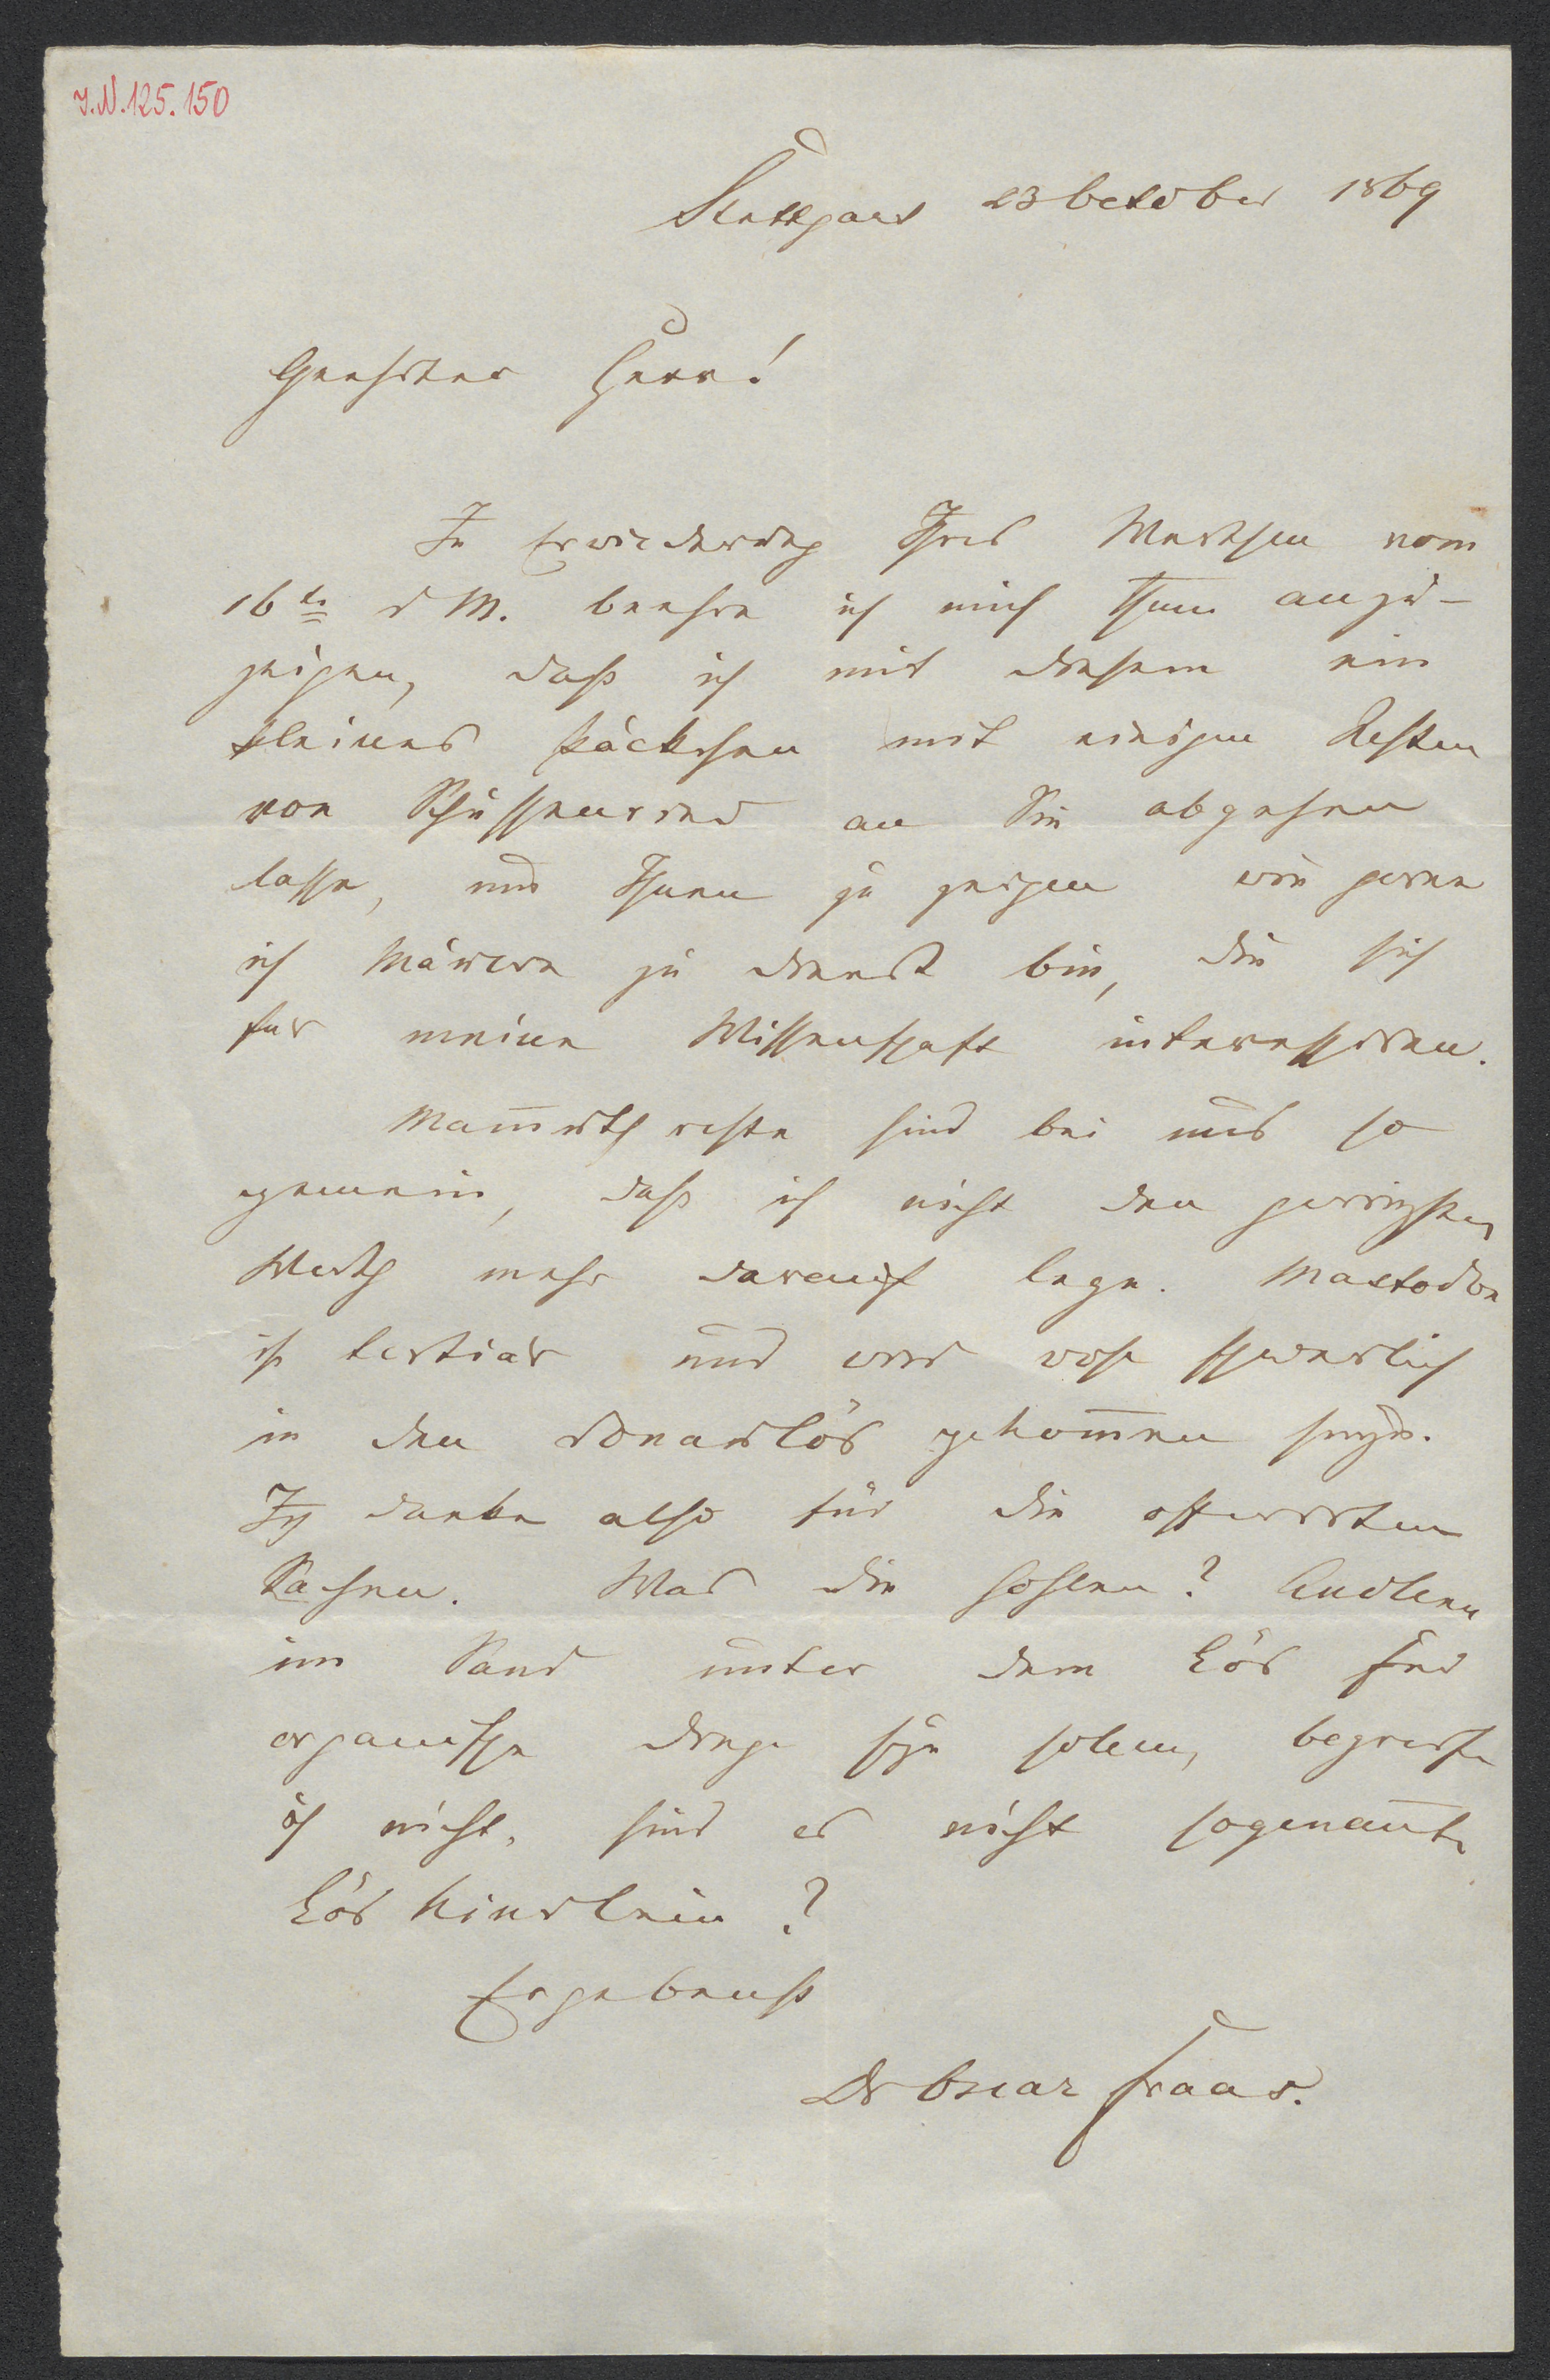 I.N. 125.150
Stuttgart 23 October 1869
Geehrter Herr!
In Erwiederung Ihres Werthen vom
16ten d M. beehre ich mich Ihnen anzu-
zeigen, daß ich mit diesem ein
kleines Päckchen mit einigen Resten
von Schussenried an Sie abgehen
lasse, um Ihnen zu zeigen wie gerne
ich Männern zu Dienst bin, die sich
für meine Wissenschaft interessiren.
Mam̅uthreste sind bei uns so
gemein, daß ich nicht den geringsten
Werth mehr darauf lege. Mastodon
ist tertiär und wird wohl schwerlich
in den Donaulös gekom̅en seyn.
Ich danke also für die offerirten
Sachen. Was die hohlen? Knollen
im Sand unter dem Lös für
organische Dinge seyn sollen, begreife
ich nicht, sind es nicht sogenan̅te
Löskindlein?
Ergebenst
Dr Oscar Fraas.